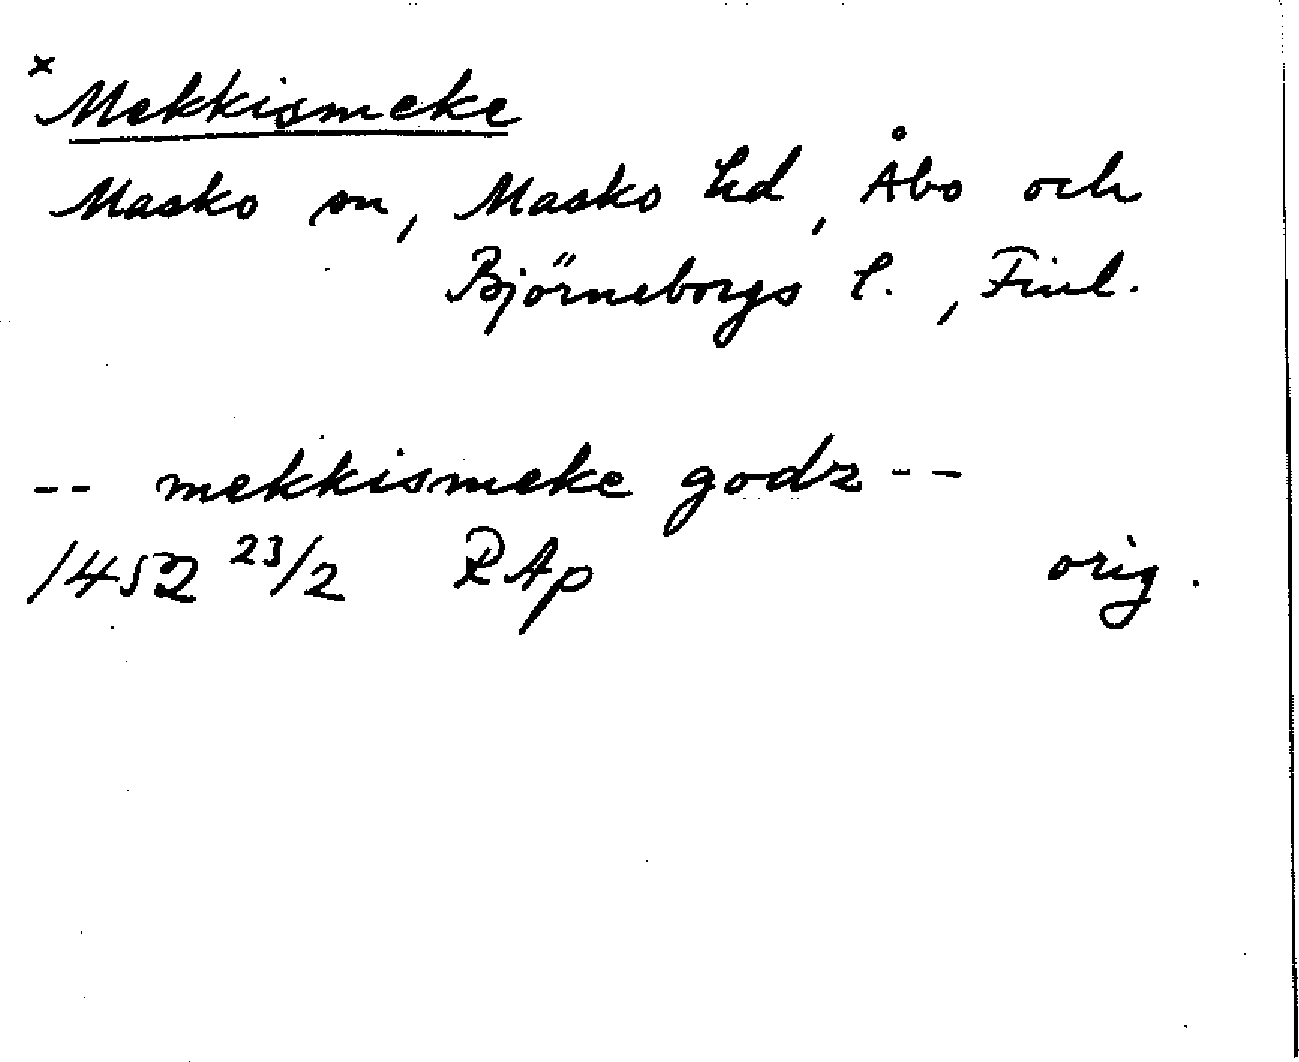 x Mekkismeke
Masko sn, Masko hd, Åbo och
Björneborgs l., Finl.
-- mekkismeke godz --
1452 23/2 RAp orig.